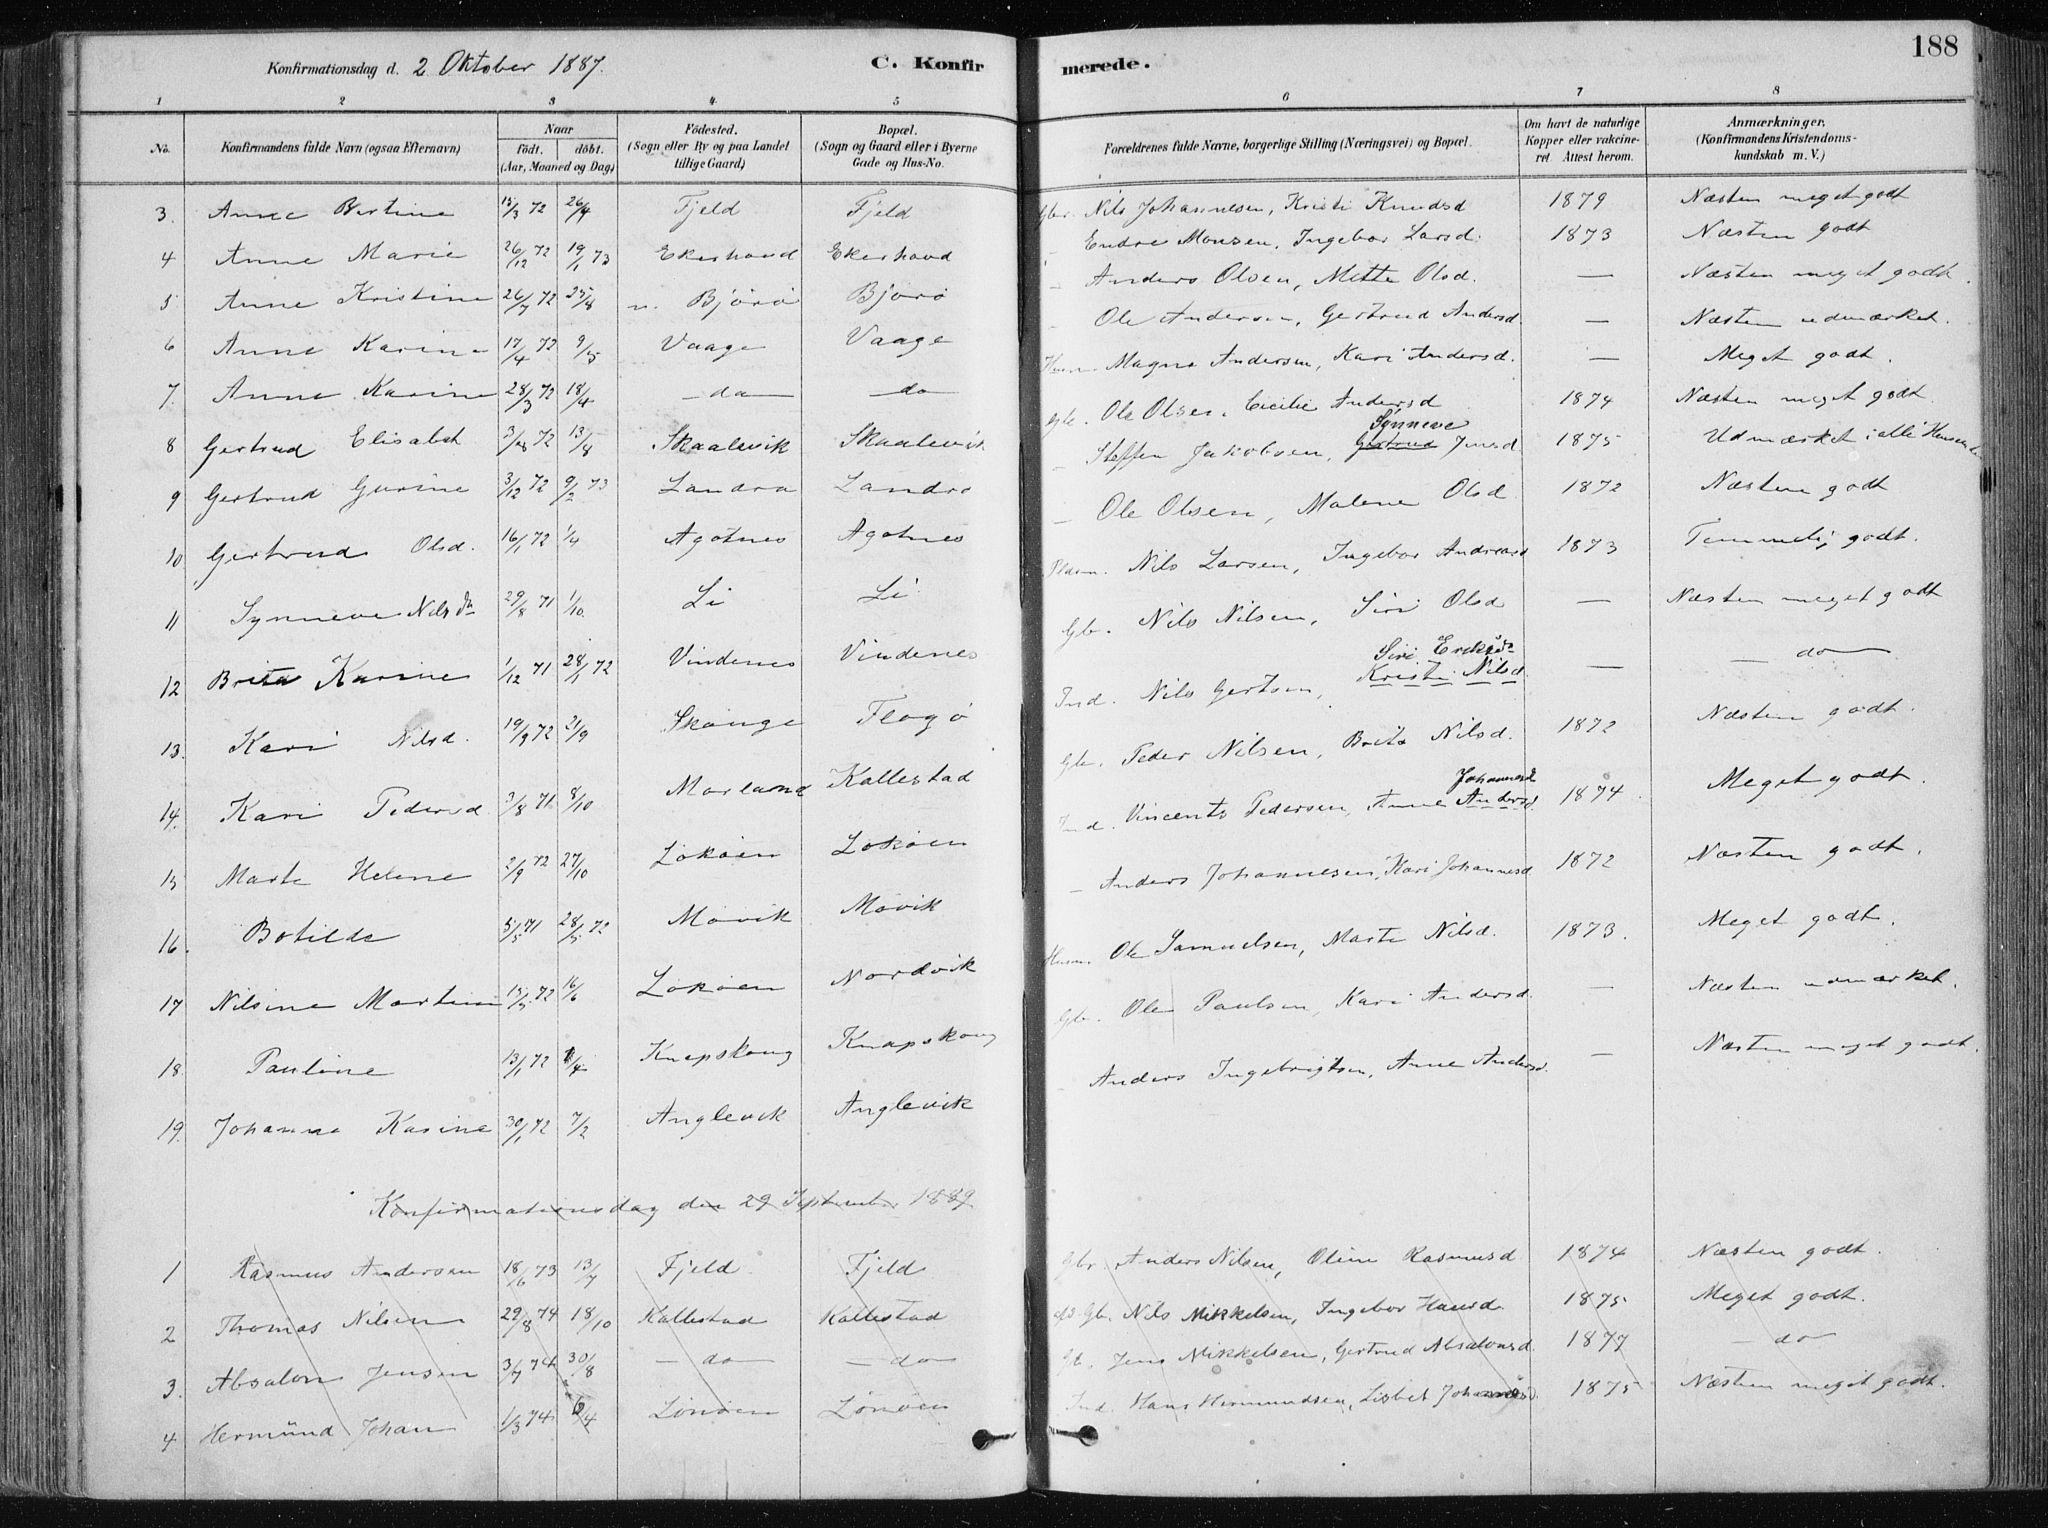 Konfirmationsdag d. 2 Oktober 1887. C. Konfirmerede. 188
1 2 3 4 5 6 7 8
No. Konfirmandens fulde Navn (ogsaa Efternavn) Naar født. døbt. (Aar, Maaned og Dag) Fødested. (Sogn eller By og paa Landet tillige Gaard) Bopæl. (Sogn og Gaard eller i Byerne Gade og Hus-No. Forældrenes fulde Navne, borgerlige Stilling (Næringsvei) og Bopæl. Om havt de naturlige Kopper eller vakcineret. Attest herom. Anmærkninger. (Konfirmandens Kristendomskundskab m. V.)
3. Anne Bertine 15/3 72 26/4 Fjeld Fjeld Gbr. Nils Johannesen, Kristi Knudsd 1879 Næsten meget godt
4 Anne Marie 26/12 72 19/1 73 Ekerhovd Ekerhovd - Endre Monsen, Ingebor Larsd. 1873 Næsten godt
5 Anne Kristine 26/7 72 25/8 n. Bjørø Bjørø - Anders Olsen, Mette Olsd. — Næsten meget godt.
6 Anne Karine 17/4 72 9/5 Vaage Vaage - Ole Andersen, Gertrud Andersd. — Næsten udmærket.
7. Anne Karine 28/3 72 18/4 - do - do Husm. Magne Andersen, Kari Andersd. — Meget godt.
8 Gertrud Elisabet 72 13/8 Skaalevik Skaalevik Gb. Ole Olsen, Cecilie Andersd 1874 Næsten meget godt.
9 Gertrud Gurine 3/12 72 9/2 73 Landrø Landrø - Steffen Jakobsen, Gertrud Synneve Jensd 1875 Udmærket i alle
10 Gertrud Olsd. 16/1 72 1/4 Agotnes Agotnes - Ole Olsen, Malene Olsd 1872 Næsten godt
11 Synneve Nilsdr 29/8 71 1/10. Li Li Pladsm. Nils Larsen, Ingebor Andreasd 1873 Temmelig godt.
12 Brita Karine 1/12 71 28/1 72 Vindenes Vindenes Gb. Nils Nilsen, Siri Olsd — Næsten meget godt
13. Kari Nilsd. 19/9 72 21/9 Skonge Flogø Ind. Nils Gertsen, Siri Eriksdr Kristi Nilsd. — - do -
14. Kari Pedersd 3/8 71 8/10 Morland Kallestad Gb. Peder Nilsen, Brita Nilsd. 1872 Næsten godt.
15 Marte Helene 2/9 72 27/10 Løkøen Løkøen Ind. Vincents Pedersen, Anne Johannesd Andersd. 1874. Meget godt.
16. Botilde 5/5 71 28/5 72 Møvik Møvik - Anders Johannesen, Kari Johannesd 1872 Næsten godt.
17 Nilsine Martine 72 16/6 Løkøen Nordvik Husm. Ole Samuelsen, Marte Nilsd. 1873. Meget godt.
18. Pauline 13/1 72 1/4 Knapskoug Knapskoug Gb. Ole Paulsen, Kari Andersd. — Næsten udmærket.
19. Johanna Karine 30/1 72 7/2 Anglevik Anglevik - Anders Ingebrigtsen, Anne Andersd. — Næsten meget godt.
Konfirmationsdag den 29 September 1889
1 Rasmus Andersen 18/6 73 13/7 Fjeld Fjeld Gbr. Anders Nilsen, Oline Rasmusd 1874 Næsten godt.
2 Thomas Nilsen 29/8 74 18/10 Kallestad Kallestad Gb. Nils Mikkelsen, Ingebor Hansd. 1875 Meget godt.
3. Absalon Jensen 3/7 74 30/8 - do - - do Gb. Jens Mikkelsen, Gertrud Absalonsd. 1877 - do
4 Hermund Johan 1/3 74 6/4 Lønøen Lønøen Ind. Hans Hermundsen, Lisbet Johannesd. 1875 Næsten meget godt.